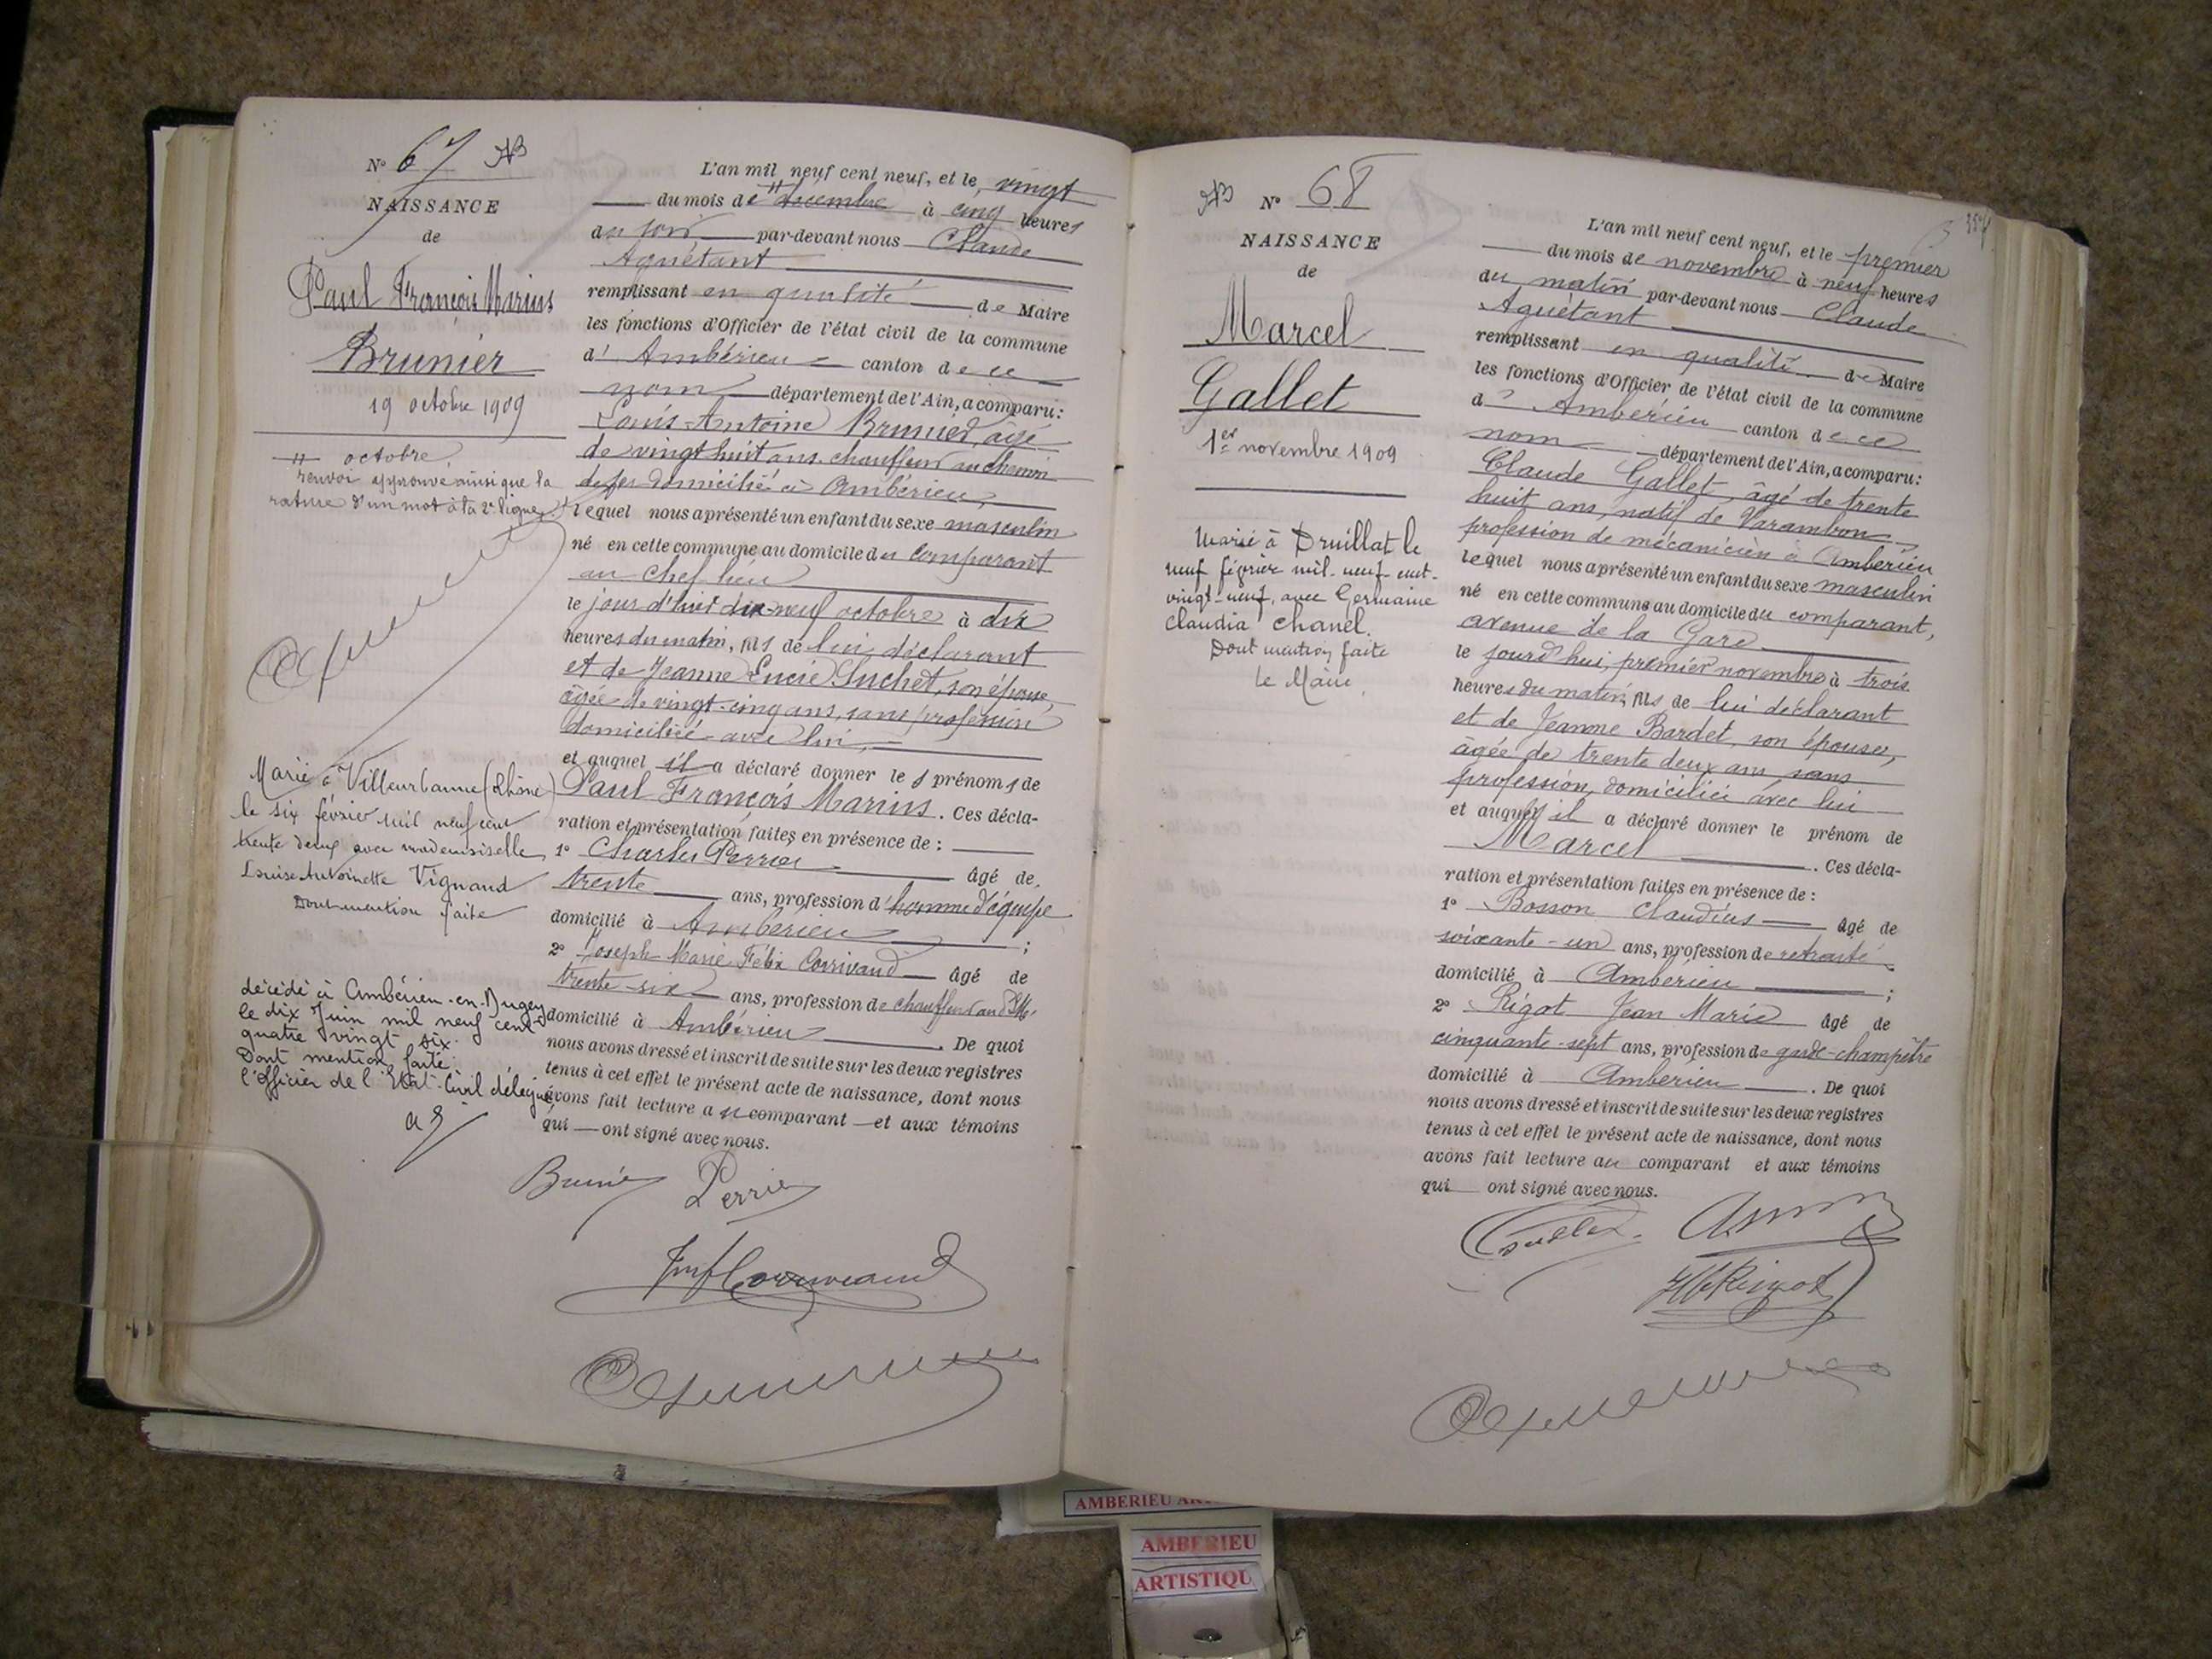 N° 67 AB
NAISSANCE
de
Paul François Marius
Brunier
19 octobre 1909
octobre
renvoi approuvé ainsi que la
rature d'un mot à la 2e ligne
Marié à Villeurbanne (Rhône)
le six février mil neuf cent
trente deux avec mademoiselle
Louise Antoinette Vignaud
Dont mention faite
décédé à Ambérieu-en-Bugey
le dix Juin mil neuf cent
quatre vingt six.
Dont mention faite.
l'officier de l'Etat-Civil délégué
L'an mil neuf cent neuf, et le vingt
du mois de décembre à cinq heures
du soir par-devant nous Claude
Aguétant
remplissant en qualité de Maire
les fonctions d'Officier de l'état civil de la commune
d' Ambérieu canton de ce
nom département de l'Ain, a comparu:
Louis-Antoine Brunier, âgé
de vingt huit ans, chauffeur au chemin
de fer domicilié à Ambérieu,
lequel nous a présenté un enfant du sexe masculin
né en cette commune au domicile du comparant
au chef lieu
le jour d'hier dix-neuf octobre à dix
heures du matin, fils de lui déclarant
et de Jeanne Lucie Luchet, son épouse,
âgée de vingt-cinq ans, sans profession
domiciliée avec lui,
et auquel il a déclaré donner les prénoms de
Paul François Marius. Ces décla-
ration et présentation faites en présence de :
1° Charles Perrier âgé de
trente ans, profession d'homme d'équipe
domicilié à Ambérieu ;
2° Joseph Marie Félix Corrivaud âgé de
trente-six ans, profession de chauffeur au
domicilié à Ambérieu . De quoi
nous avons dressé et inscrit de suite sur les deux registres
tenus à cet effet le présent acte de naissance, dont nous
avons fait lecture au comparant et aux témoins
qui ont signé avec nous.
Brunier Perrier
Corrivaud
AB N° 68
NAISSANCE
de
Marcel
Gallet
1er novembre 1909
Marié à Druillat le
neuf février mil-neuf-cent-
vingt-neuf, avec Germaine
Claudia Chanel.
Dont mention faite
Le Maire
L'an mil neuf cent neuf, et le premier
du mois de novembre à neuf heures
du matin par-devant nous Claude
Aguétant
remplissant en qualité de Maire
les fonctions d'Officier de l'état civil de la commune
d' Ambérieu canton de ce
nom département de l'Ain, a comparu:
Claude Gallet, âgé de trente
huit ans, natif de Varambon
profession de mécanicien à Ambérieu
lequel nous a présenté un enfant du sexe masculin
né en cette commune au domicile du comparant,
avenue de la Gare
le jourd'hui, premier novembre à trois
heures du matin, fils de lui déclarant
et de Jeanne Bardet, son épouse,
âgée de trente deux ans, sans
profession, domiciliée avec lui
et auquel il a déclaré donner le prénom de
Marcel . Ces décla-
ration et présentation faites en présence de :
1° Bosson Claudius âgé de
soixante-un ans, profession de retraité
domicilié à Ambérieu ;
2° Rigot Jean Marie âgé de
cinquante-sept ans, profession de garde-champêtre
domicilié à Ambérieu . De quoi
nous avons dressé et inscrit de suite sur les deux registres
tenus à cet effet le présent acte de naissance, dont nous
avons fait lecture au comparant et aux témoins
qui ont signé avec nous.
Rigot
AMBERIEU
AMBERIEU
ARTISTIQU